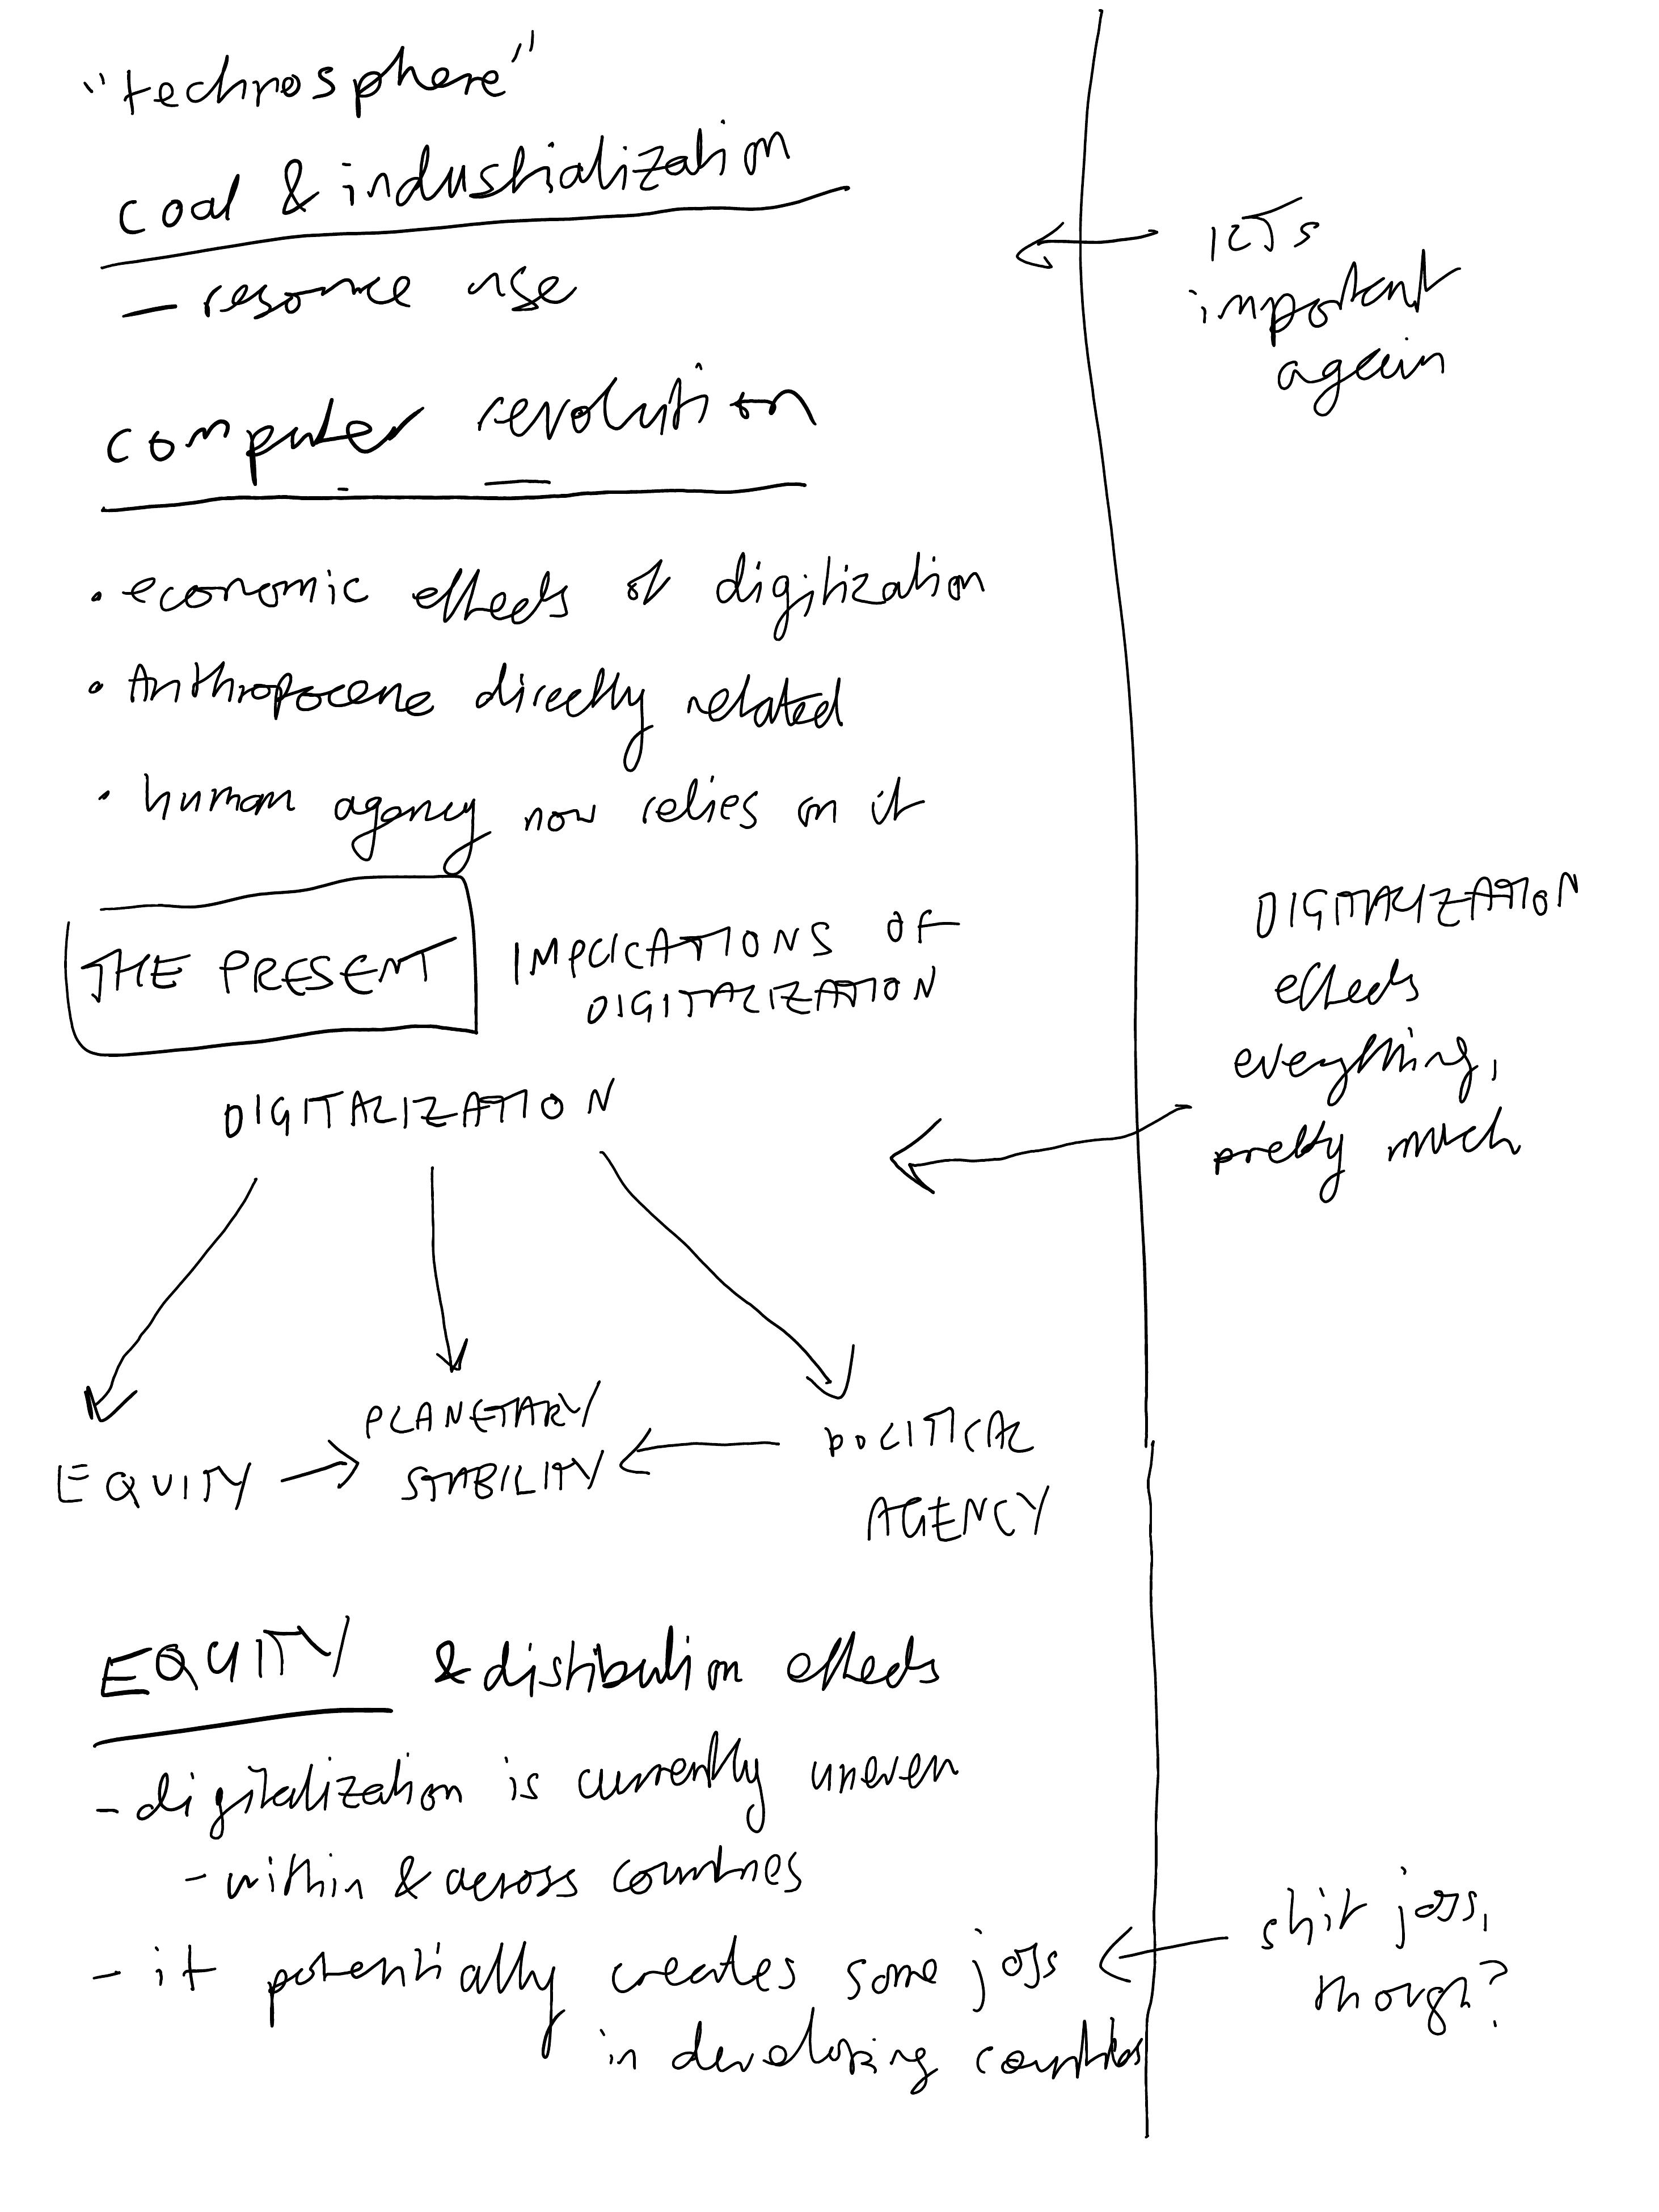 "technosphere"
coal & industrialization
— resource use
ICTs
important
again
computer revolution
• economic effects of digitization
• Anthropocene directly related
• human agency now relies on it
THE PRESENT
IMPLICATIONS OF
DIGITALIZATION
DIGITALIZATION
effects
everything,
pretty much
DIGITALIZATION
EQUITY
PLANETARY
STABILITY
POLITICAL
AGENCY
EQUITY & distribution effects
- digitalization is currently uneven
- within & across countries
- it potentially creates some jobs
in developing countries
shit jobs,
though?